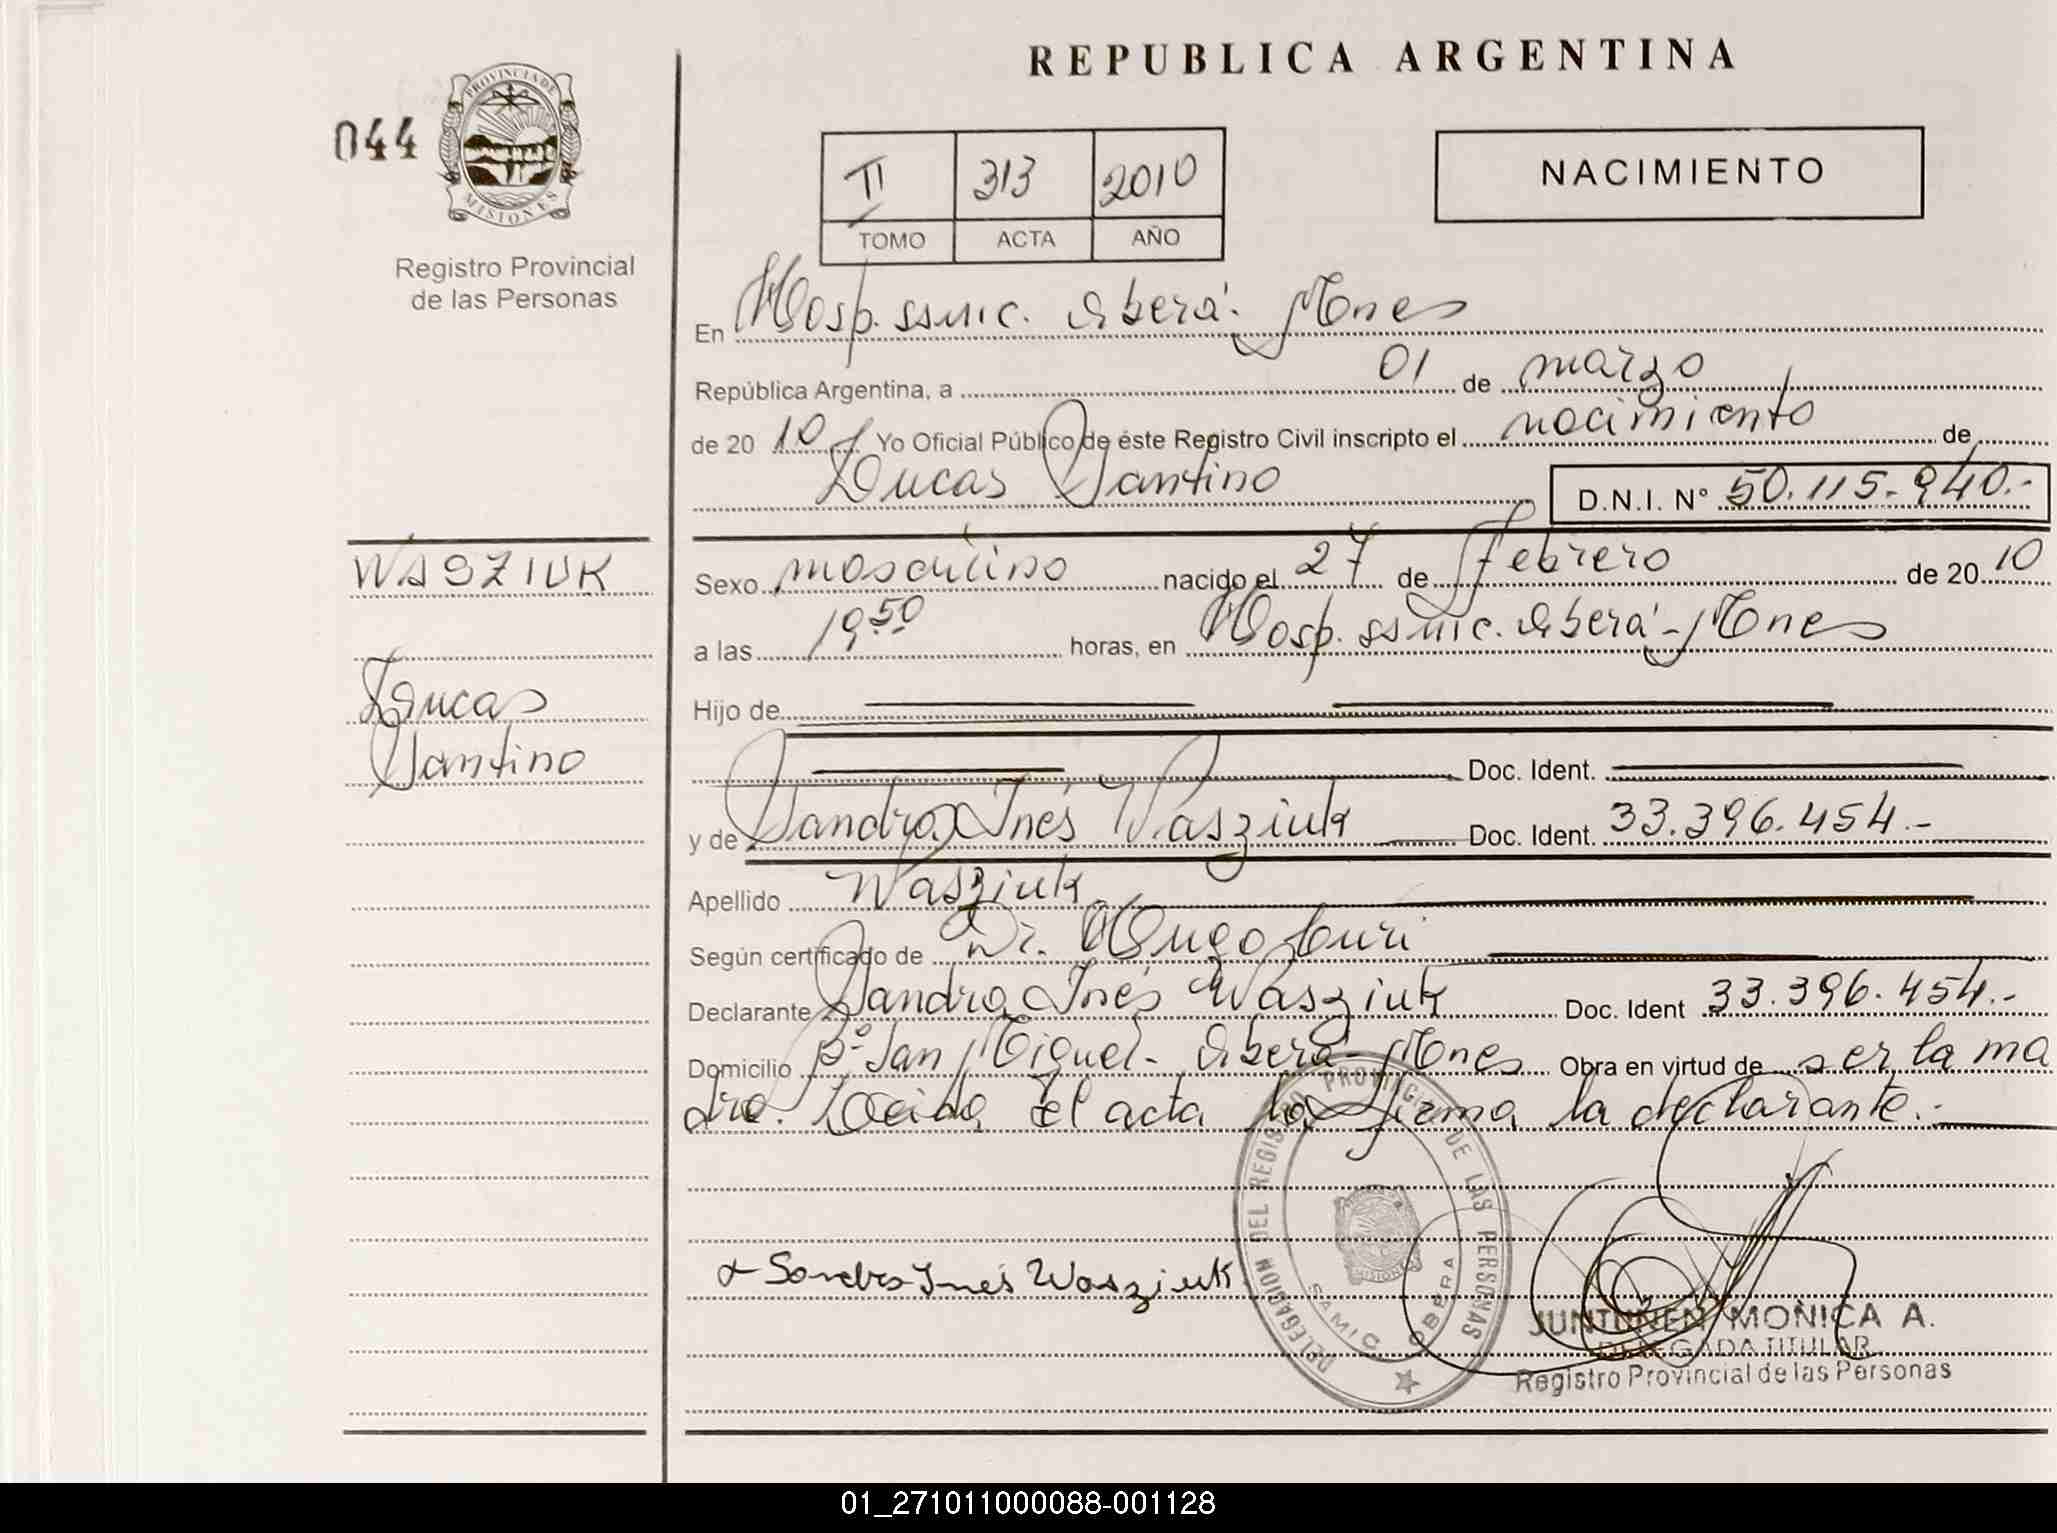 REPUBLICA ARGENTINA
044
PROVINCIA DE
MISIONES
Registro Provincial
de las Personas
II 313 2010
TOMO ACTA AÑO
NACIMIENTO
En Hosp. ssmic. Oberá - Mnes
República Argentina, a 01 de marzo
de 20 10 Yo Oficial Público de éste Registro Civil inscripto el nacimiento de
Lucas Santino D.N.I. N° 50.115.940.-
WASZIUK
Lucas
Santino
Sexo masculino nacido el 27 de Febrero de 20 10
a las 19.50 horas, en Hosp. ssmic. Oberá - Mnes
Hijo de
Doc. Ident.
y de Sandra Inés Wasziuk Doc. Ident. 33.396.454.-
Apellido Wasziuk
Según certificado de Dr. Hugo Curi
Declarante Sandra Inés Wasziuk Doc. Ident 33.396.454.-
Domicilio B° San Miguel - Oberá - Mnes Obra en virtud de ser la ma
dre. Leida el acta la firma la declarante.-
DELEGACION DEL REGISTRO PROVINCIAL DE LAS PERSONAS
MISIONES
SAMIC OBERA
Sandra Inés Wasziuk
JUNTUNEN MONICA A.
DELEGADA TITULAR
Registro Provincial de las Personas
01_271011000088-001128